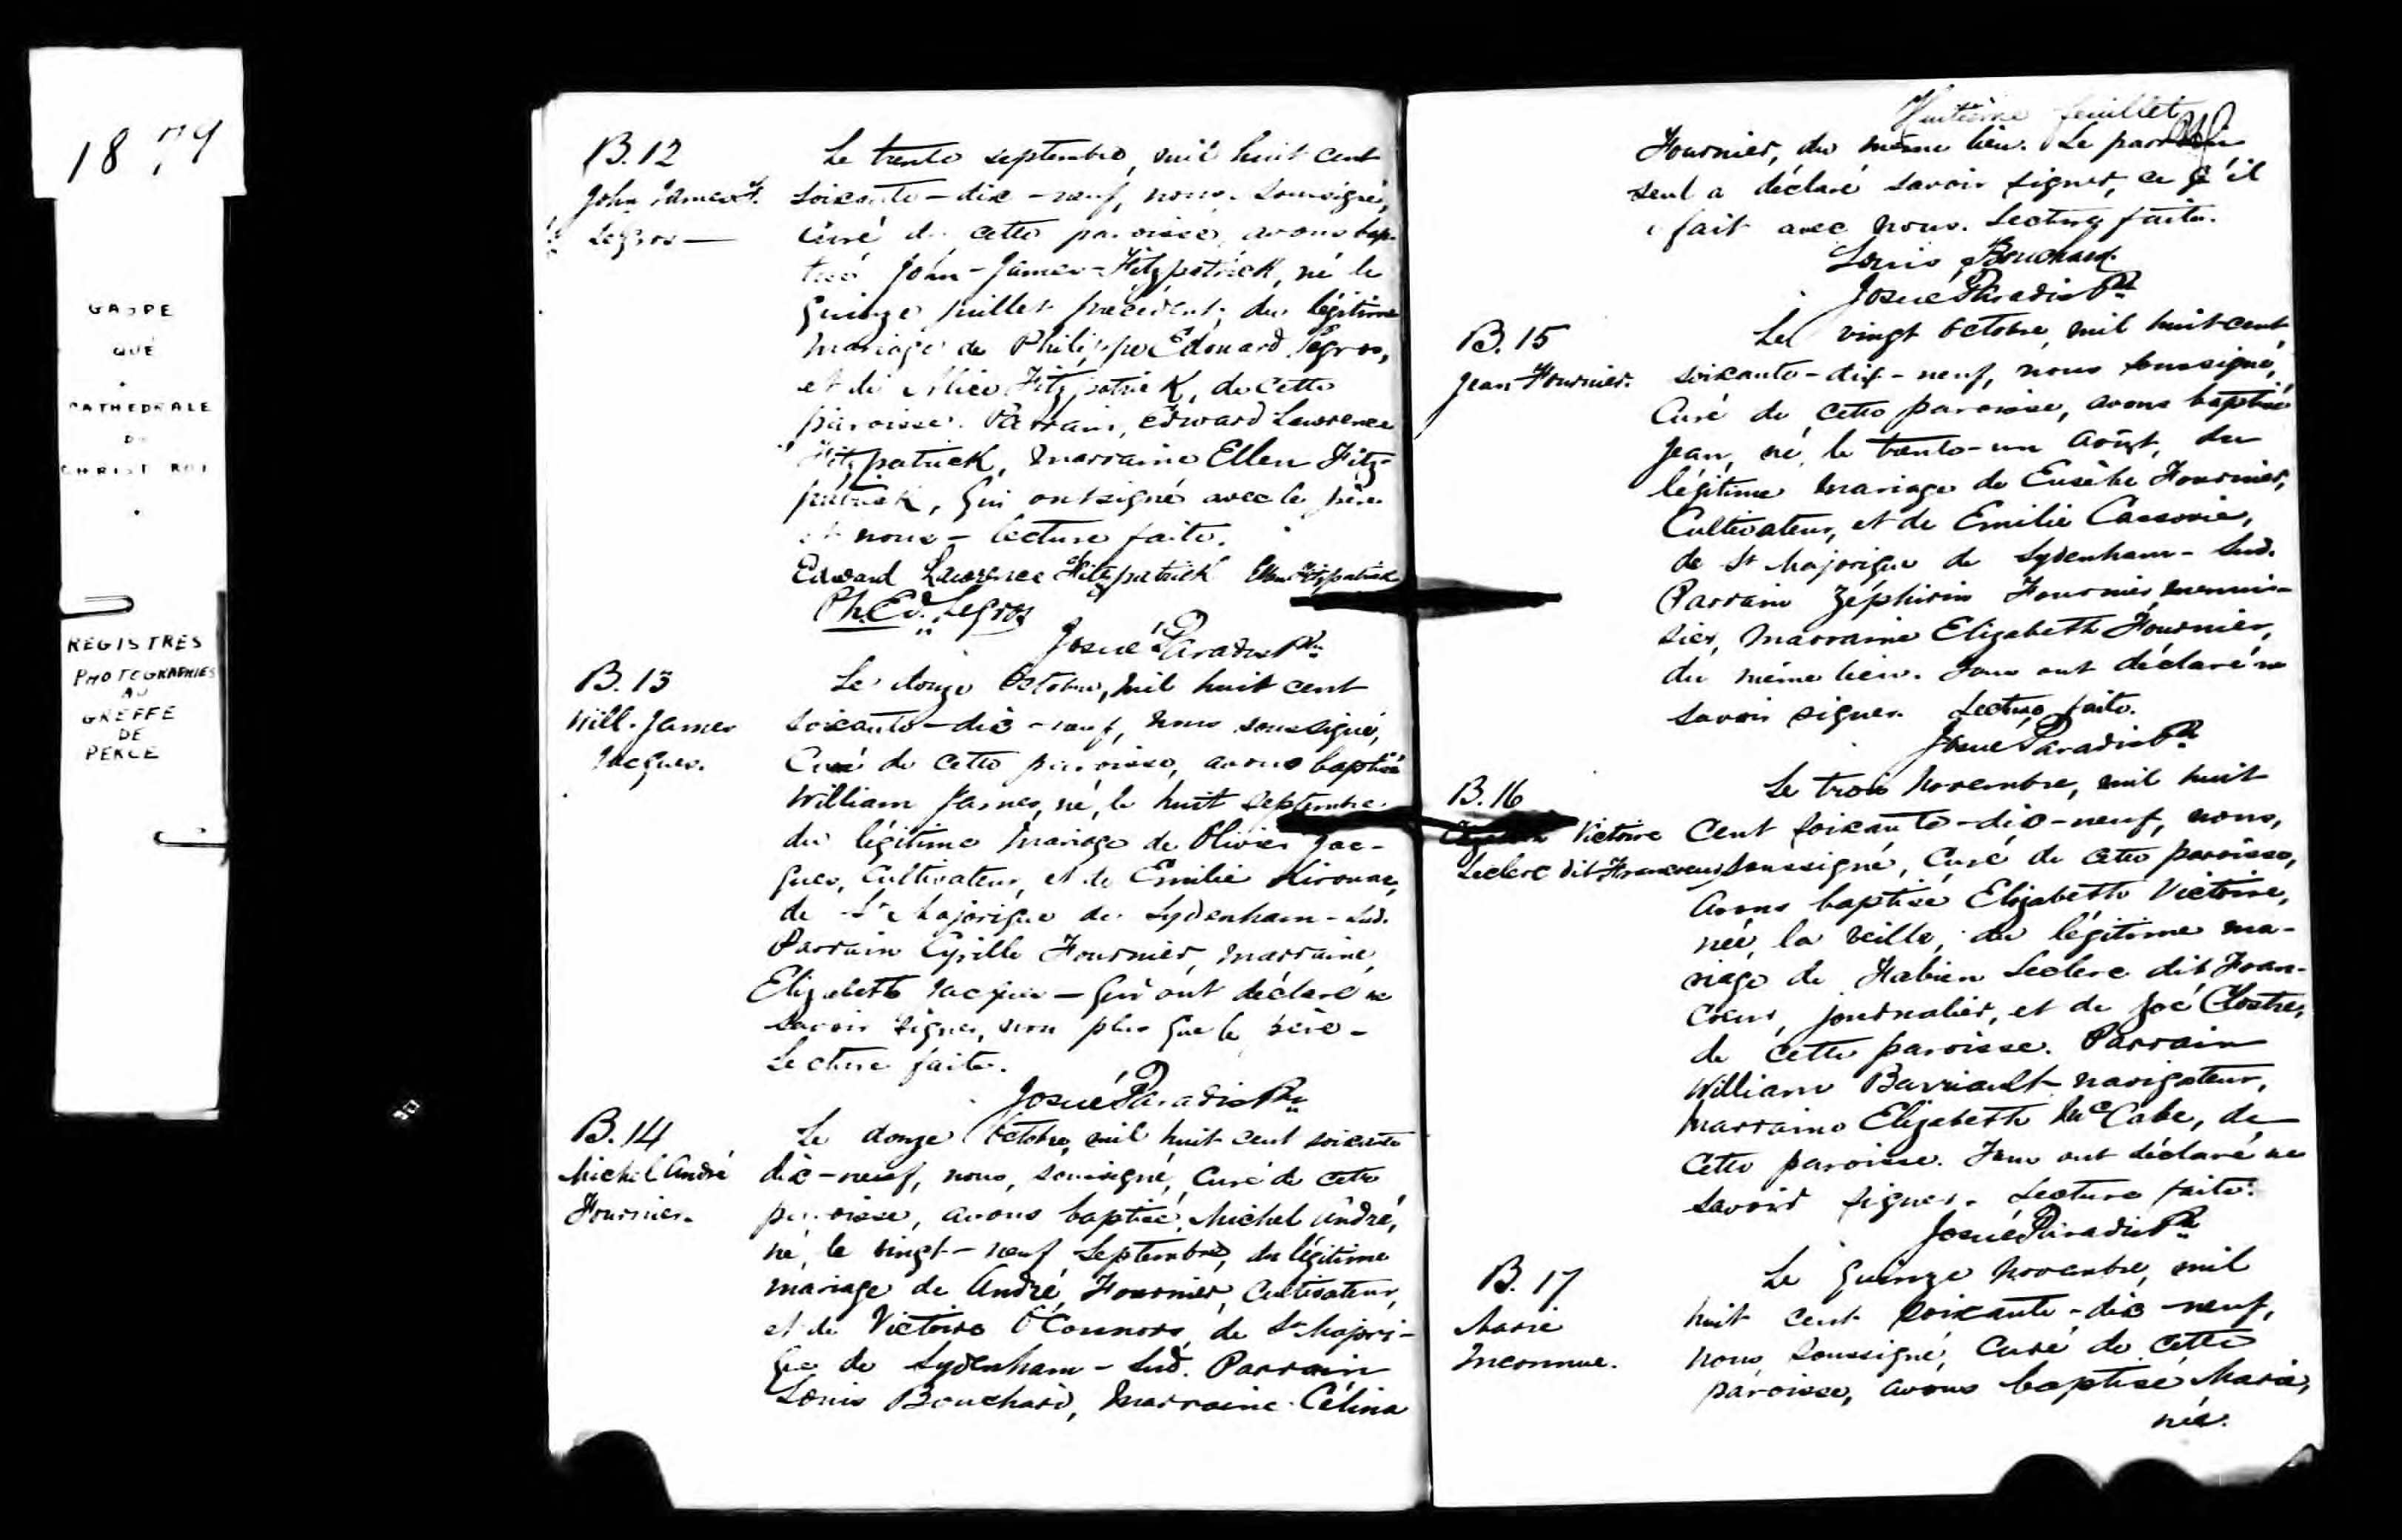 1879
GASPE
QUE
CATHEDRALE
DU
CHRIST ROI
REGISTRES
PHOTOGRAPHIES
AU
GREFFE
DE
PERCE
B.12
John James F.
LeGros —
Le trente septembre, mil huit cent
soixante-dix-neuf, nous, soussigné,
Curé de cette paroisse, avons bap-
tisé John-James-Fitzpatrick, né le
quinze juillet précédent, du légitime
mariage de Philippe Edouard Legros,
et de Alice Fitzpatrick, de cette
paroisse. Parrain, Edward Lawrence
Fitzpatrick, Marraine Ellen Fitz-
patrick, qui ont signé avec le père
et nous - lecture faite.
Edward Lawrence Fitzpatrick Ellen Fitzpatrick
Ph. Ed. Legros
Josué Paradis Ptre
B.13
Will. James
Jacques.
Le douze Octobre, mil huit cent
soixante-dix-neuf, nous soussigné,
Curé de cette paroisse, avons baptisé
William James, né, le huit septembre
du légitime mariage de Olivier Jac-
ques, Cultivateur, et de Emilie
de St Majorique de Sydenham-Sud.
Parrain Cyrille Fournier, marraine,
Elizabeth Jacques - qui ont déclaré ne
savoir signer, non plus que le père -
Lecture faite.
Josué Paradis Ptre
B.14
Michel André
Fournier.
Le douze Octobre, mil huit cent soixante
dix-neuf, nous, soussigné, Curé de cette
paroisse, avons baptisé, Michel André,
né, le vingt-neuf Septembre, du légitime
mariage de André Fournier, Cultivateur,
et de Victoire O'Connors, de St Majori-
que de Sydenham-Sud. Parrain
Louis Bouchard, Marraine Célina
Huitième feuillet
Fournier, du même lieu. Le parrain
seul a déclaré savoir signer, ce qu'il
a fait avec nous. Lecture faite.
Louis Bouchard
Josué Paradis Ptre
B.15
Jean Fournier.
Le vingt Octobre, mil huit cent
soixante-dix-neuf, nous soussigné,
Curé de cette paroisse, avons baptisé
Jean, né, le trente-un Août, du
légitime mariage de Eusèbe Fournier,
Cultivateur, et de Emilie
de St Majorique de Sydenham-Sud.
Parrain Zéphirin Fournier, menui-
sier, Marraine Elizabeth Fournier,
du même lieu. Tous ont déclaré ne
savoir signer. Lecture faite.
Josué Paradis Ptre
B.16
Victoire
Leclerc dit Francoeur
Le trois Novembre, mil huit
Cent soixante-dix-neuf, nous,
soussigné, Curé de cette paroisse,
Avons baptisé Elizabeth Victoire,
née, la veille, du légitime ma-
riage de Fabien Leclerc dit Fran-
coeur, journalier, et de Zoé
de cette paroisse. Parrain
William Barriault navigateur,
Marraine Elizabeth McCabe, de
Cette paroisse. Tous ont déclaré ne
savoir signer. Lecture faite.
Josué Paradis Ptre
B.17
Marie
Inconnue.
Le quinze Novembre, mil
huit cent soixante-dix-neuf,
nous soussigné, Curé de cette
paroisse, avons baptisé Marie,
née.